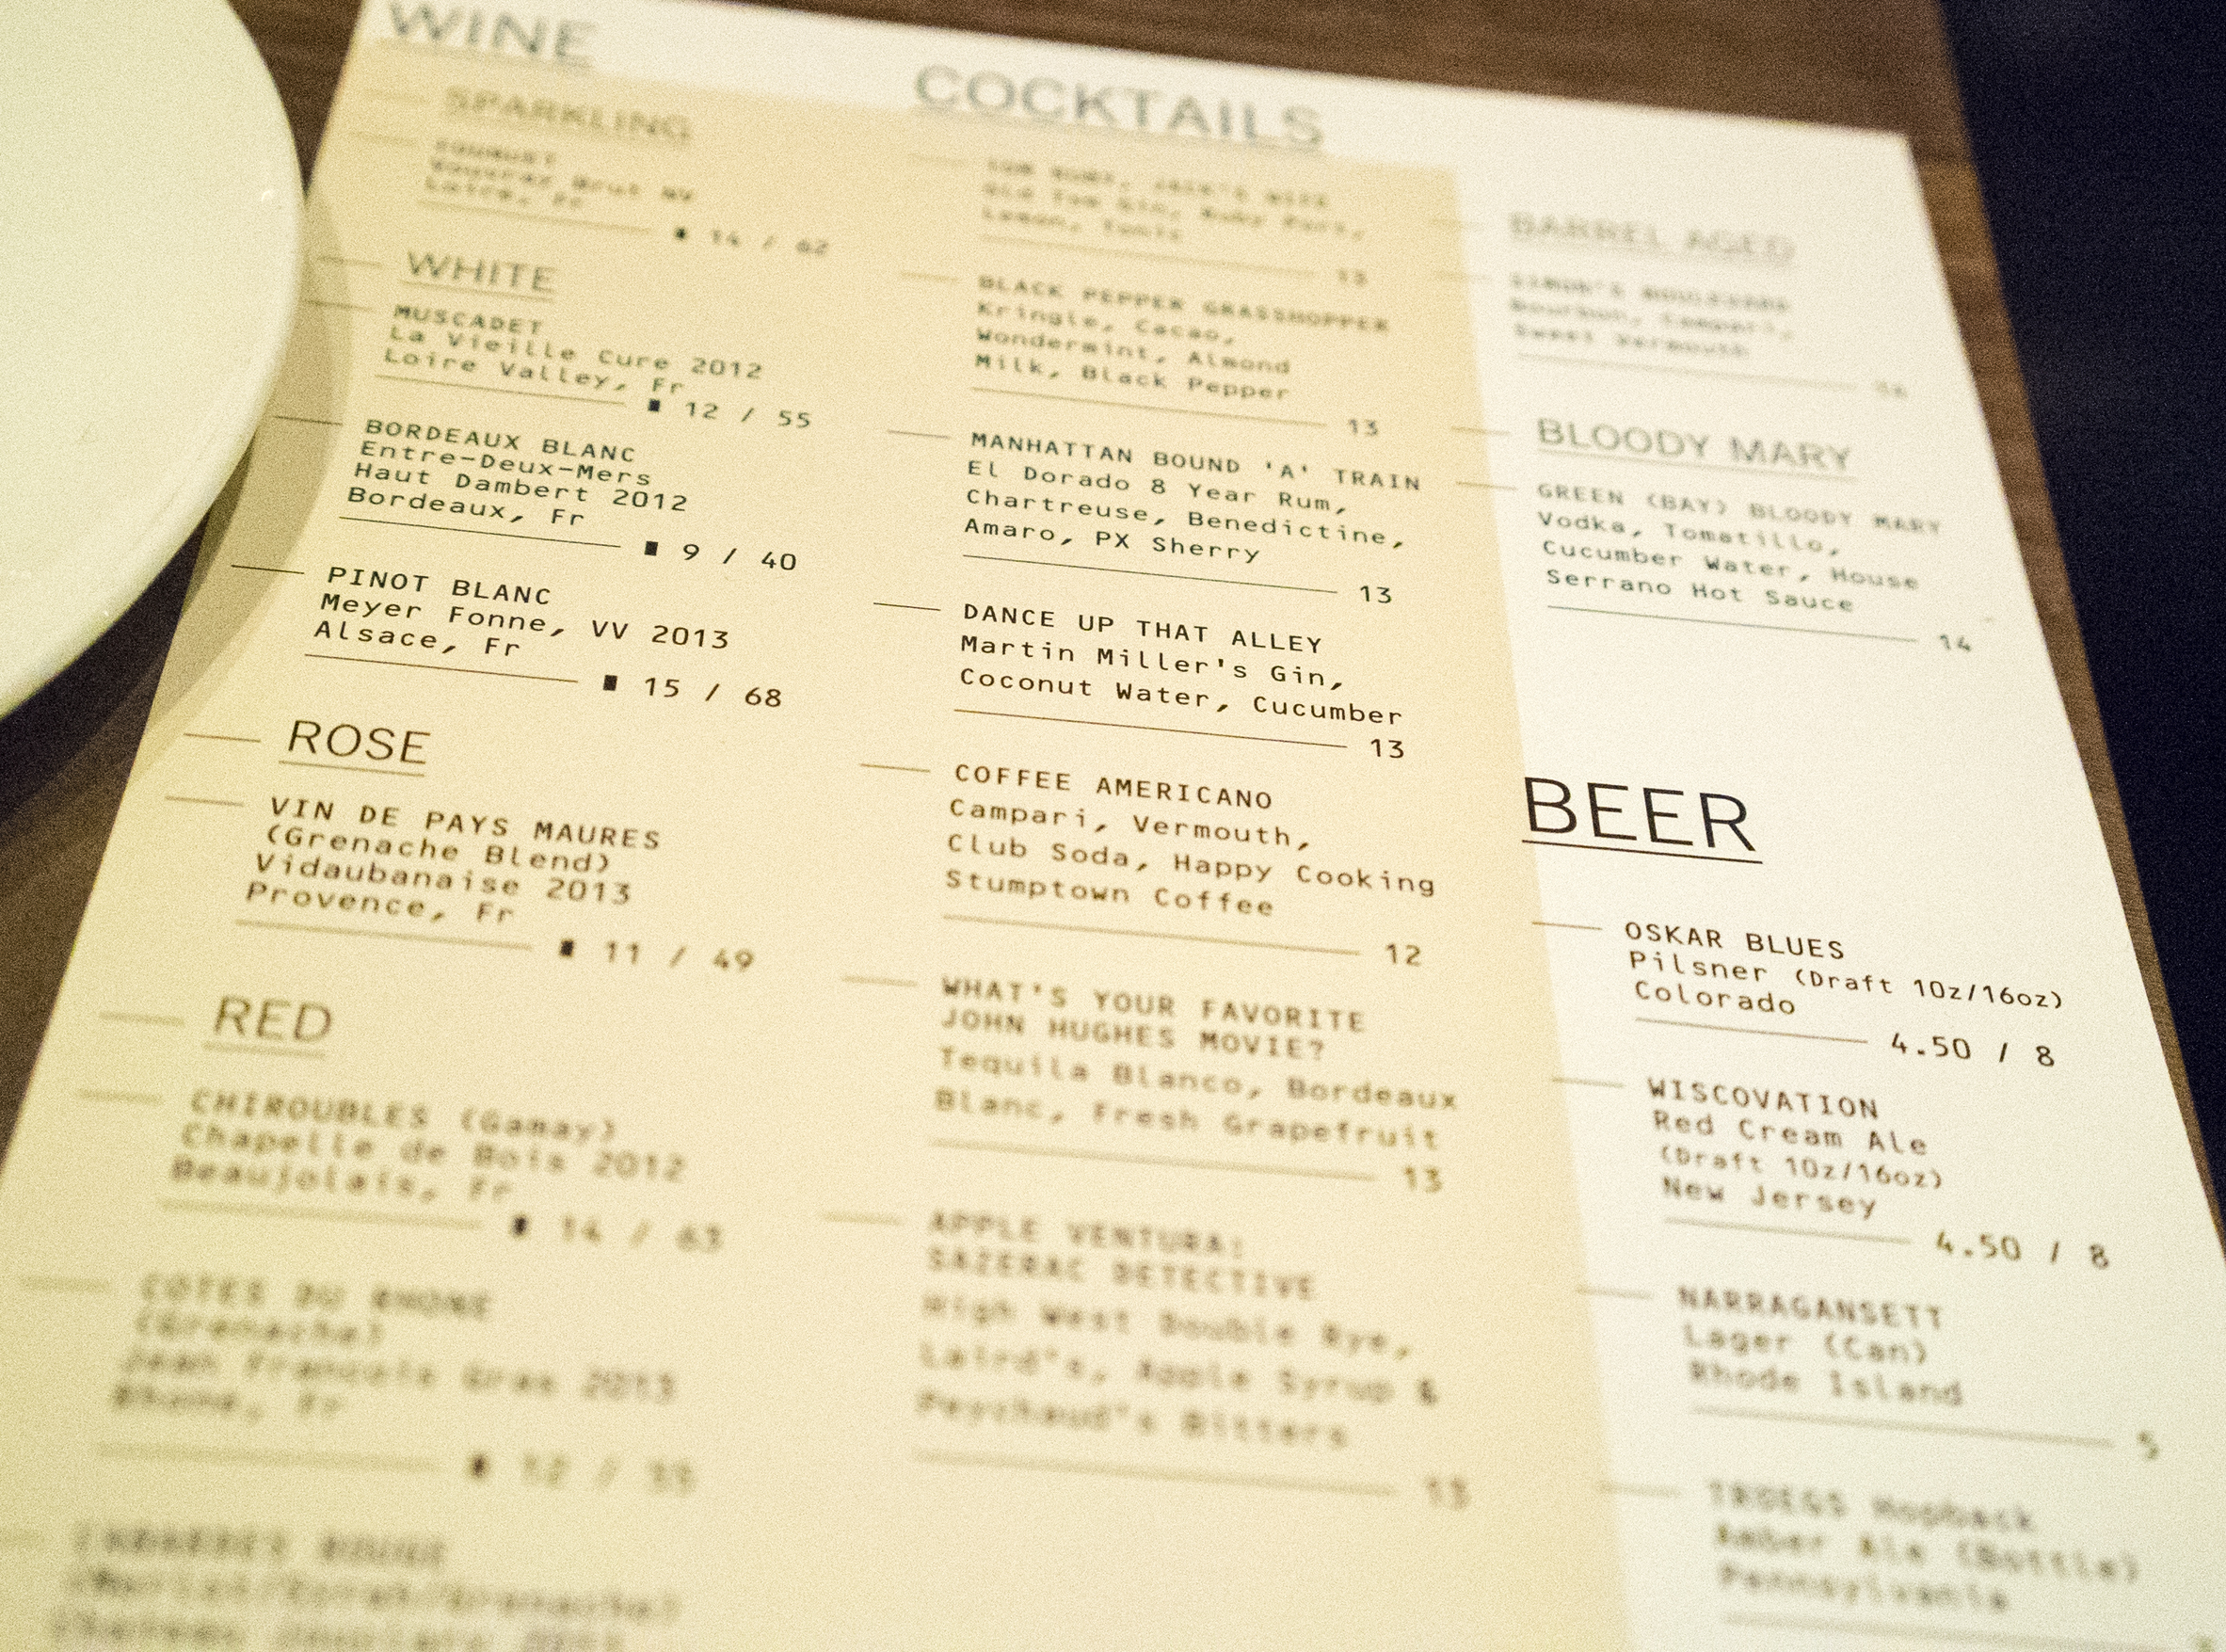 WINE
SPARKLING
Vouvray Brut NV
Loire, Fr
14 / 62
WHITE
MUSCADET
La Vieille Cure 2012
Loire Valley, Fr
12 / 55
BORDEAUX BLANC
Entre-Deux-Mers
Haut Dambert 2012
Bordeaux, Fr
9 / 40
PINOT BLANC
Meyer Fonne, VV 2013
Alsace, Fr
15 / 68
ROSE
VIN DE PAYS MAURES
(Grenache Blend)
Vidaubanaise 2013
Provence, Fr
11 / 49
RED
CHIROUBLES (Gamay)
Chapelle de Bois 2012
Beaujolais, Fr
14 / 63
COTES DU RHONE
(Grenache)
Jean Francois Gras 2013
Rhone, Fr
12 /
ROUGE
COCKTAILS
Old Tom Gin, Ruby Port,
Lemon, Tonic
13
BLACK PEPPER GRASSHOPPER
Kringle, Cacao,
Wondermint, Almond
Milk, Black Pepper
13
MANHATTAN BOUND 'A' TRAIN
El Dorado 8 Year Rum,
Chartreuse, Benedictine,
Amaro, PX Sherry
13
DANCE UP THAT ALLEY
Martin Miller's Gin,
Coconut Water, Cucumber
13
COFFEE AMERICANO
Campari, Vermouth,
Club Soda, Happy Cooking
Stumptown Coffee
12
WHAT'S YOUR FAVORITE
JOHN HUGHES MOVIE?
Tequila Blanco, Bordeaux
Blanc, Fresh Grapefruit
13
APPLE VENTURA:
SAZERAC DETECTIVE
High West Double Rye,
Laird's, Apple Syrup &
Peychaud's Bitters
13
BARREL AGED
SIMON'S BOULEVARD
Bourbon, Campari,
Sweet Vermouth
BLOODY MARY
GREEN (BAY) BLOODY MARY
Vodka, Tomatillo,
Cucumber Water, House
Serrano Hot Sauce
14
BEER
OSKAR BLUES
Pilsner (Draft 10z/16oz)
Colorado
4.50 / 8
WISCOVATION
Red Cream Ale
(Draft 10z/16oz)
New Jersey
4.50 / 8
NARRAGANSETT
Lager (Can)
Rhode Island
5
TROEGS Hopback
Amber Ale (Bottle)
Pennsylvania